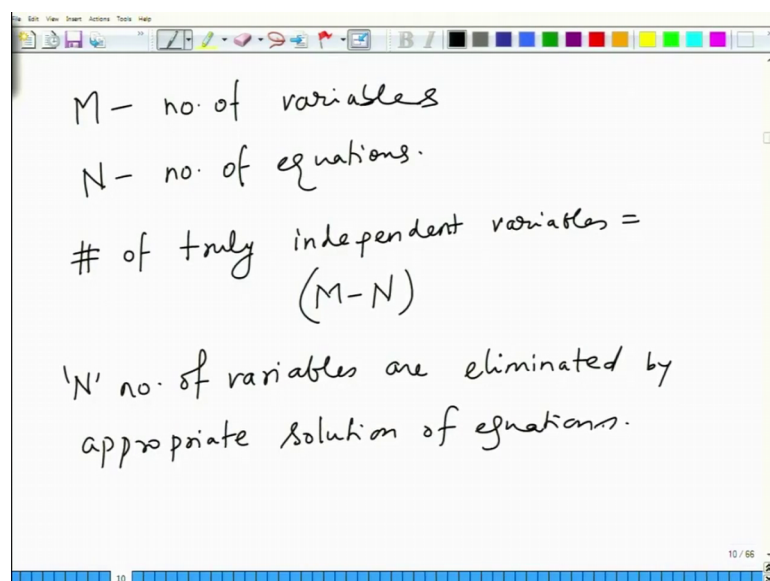 File Edit View Insert Actions Tools Help
B I
M – no. of variables
N – no. of equations.
# of truly independent variables =
(M-N)
'N' no. of variables are eliminated by
appropriate solution of equations.
10 / 66
10